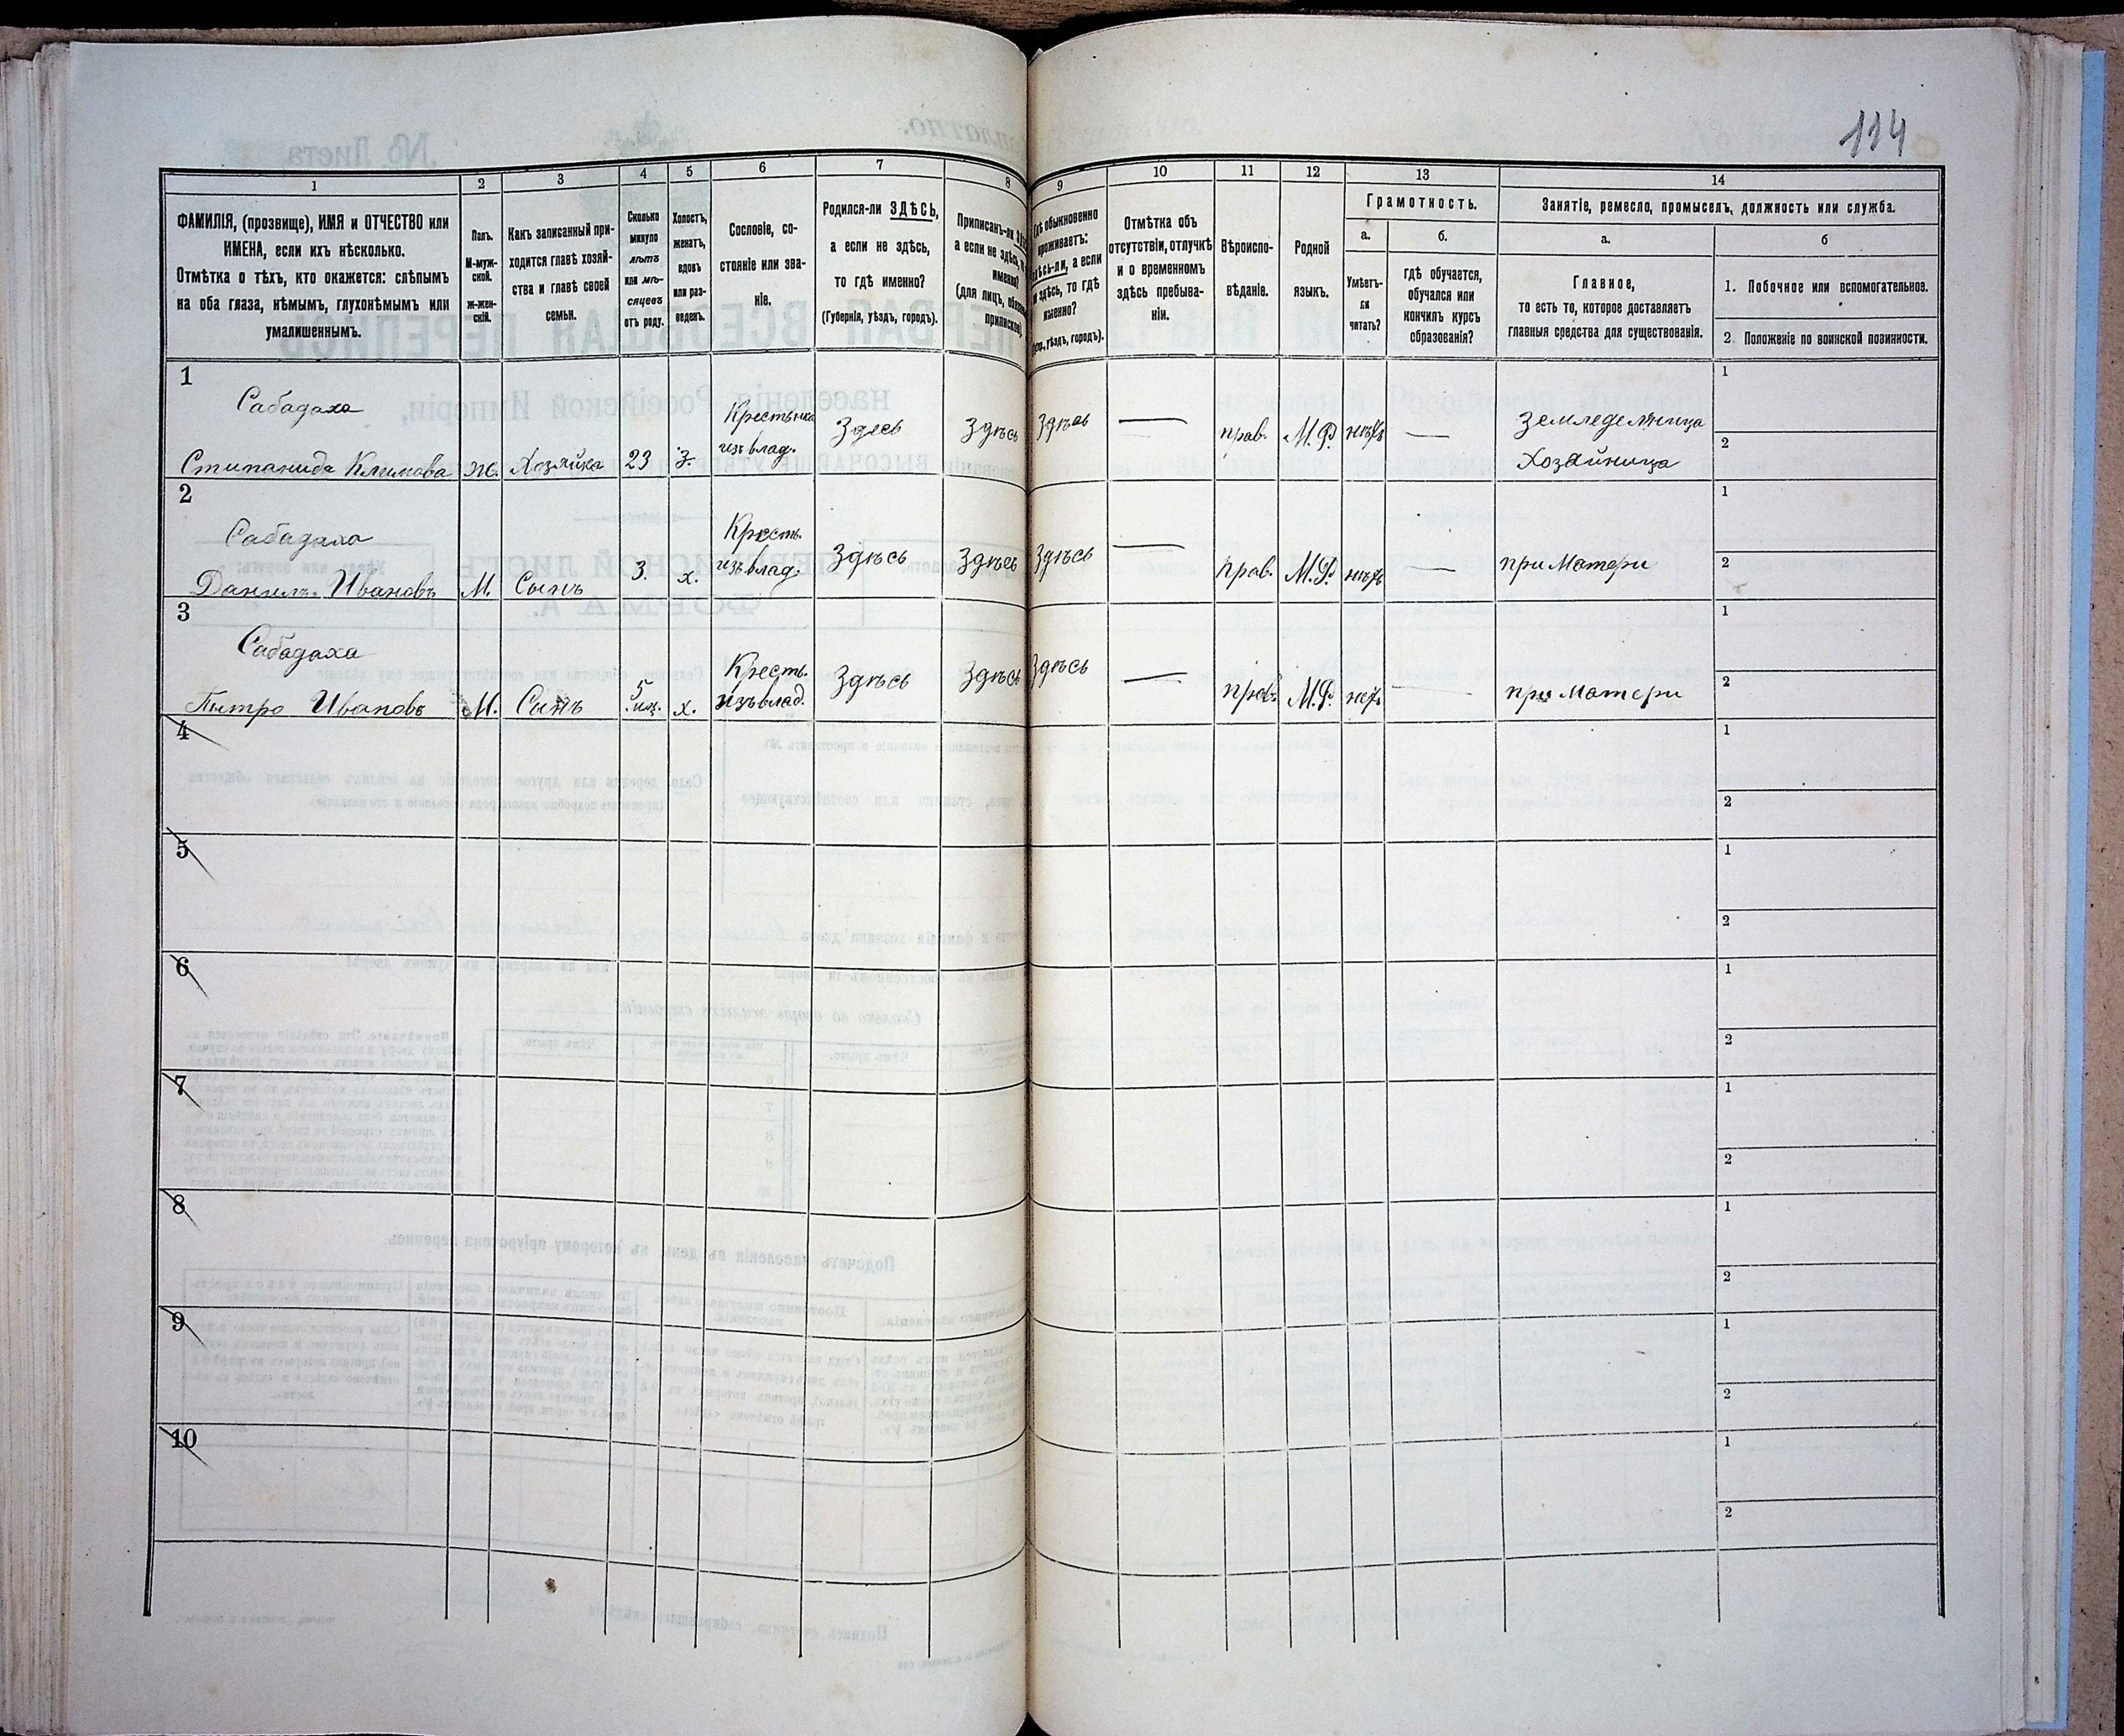 114
1
2
3
4
5
6
7
8
9
10
11
12
13
14
ФАМИЛІЯ, (прозвище), ИМЯ и ОТЧЕСТВО или
ИМЕНА, если ихъ нѣсколько.
Отмѣтка о тѣхъ, кто окажется: слѣпымъ
на оба глаза, нѣмымъ, глухонѣмымъ или
умалишеннымъ.
Полъ.
М-муж-
ской.
ж-жен-
скій.
Какъ записанный при-
ходится главѣ хозяй-
ства и главѣ своей
семьи.
Сколько
минуло
лѣтъ
или мѣ-
сяцевъ
отъ роду.
Холостъ,
женатъ,
вдовъ
или раз-
веденъ.
Сословіе, со-
стояніе или зва-
ніе.
Родился-ли ЗДѢСЬ,
а если не здѣсь,
то гдѣ именно?
(Губернія, уѣздъ, городъ).
Приписанъ-ли
а если не здѣсь,
именно?
(для лицъ,
обыкновенно
проживаетъ:
а если
здѣсь, то гдѣ
именно?
уѣздъ, городъ).
Отмѣтка объ
отсутствіи, отлучкѣ
и о временномъ
здѣсь пребыва-
ніи.
Вѣроиспо-
вѣданіе.
Родной
языкъ.
Грамотность.
а.
б.
Умѣетъ-
ли
читать?
гдѣ обучается,
обучался или
кончилъ курсъ
образованія?
Занятіе, ремесло, промыселъ, должность или служба.
а.
б
Главное,
то есть то, которое доставляетъ
главныя средства для существованія.
1. Побочное или вспомогательное.
2. Положеніе по воинской повинности.
1
Сабадаха
Стипанида Климова
Ж.
Хозяйка
23
з.
Крестьянка
изъ влад.
Здесь
Здѣсь
Здѣсь
—
прав.
М.Р.
нѣтъ
—
земледельница
Хозяйница
1
2
2
Сабадаха
Данилъ Ивановъ
М.
Сынъ
3.
х.
Кресть.
изъ влад.
Здѣсь
Здѣсь
Здѣсь
—
прав.
М.Р.
нѣтъ
—
при Матери
1
2
3
Сабадаха
Питро Ивановъ
М.
Сынъ
5
х.
Кресть.
изъ влад.
Здѣсь
Здѣсь
Здѣсь
—
прав.
М.Р.
нетъ
—
при Матери
1
2
4
1
2
5
1
2
6
1
2
7
1
2
8
1
2
9
1
2
10
1
2